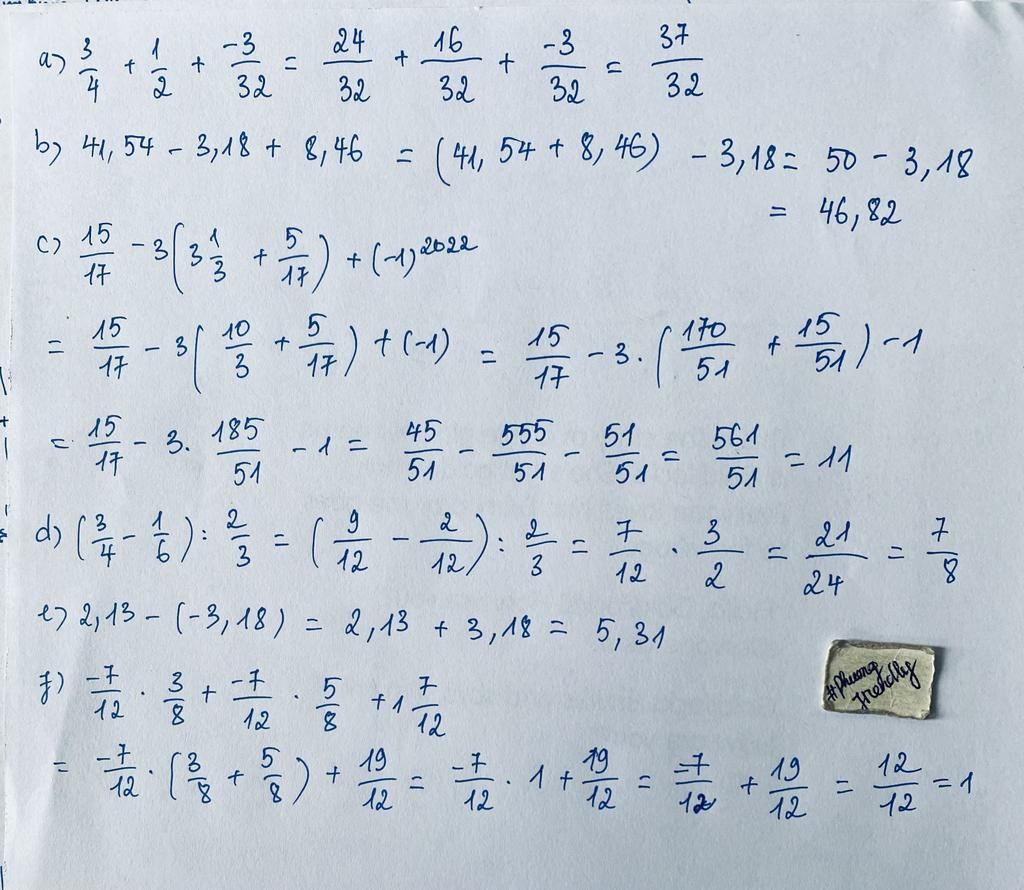 a) 3/4 + 1/2 + -3/32 = 24/32 + 16/32 + -3/32 = 37/32
b) 41,54 - 3,18 + 8,46 = (41,54 + 8,46) - 3,18 = 50 - 3,18
= 46,82
c) 15/17 - 3(3 1/3 + 5/17) + (-1)^2022
= 15/17 - 3(10/3 + 5/17) + (-1) = 15/17 - 3.(170/51 + 15/51) - 1
= 15/17 - 3. 185/51 - 1 = 45/51 - 555/51 - 51/51 = 561/51 = 11
d) (3/4 - 1/6) : 2/3 = (9/12 - 2/12) : 2/3 = 7/12 . 3/2 = 21/24 = 7/8
e) 2,13 - (-3,18) = 2,13 + 3,18 = 5,31
f) -7/12 . 3/8 + -7/12 . 5/8 + 1 7/12
= -7/12 . (3/8 + 5/8) + 19/12 = -7/12 . 1 + 19/12 = -7/12 + 19/12 = 12/12 = 1